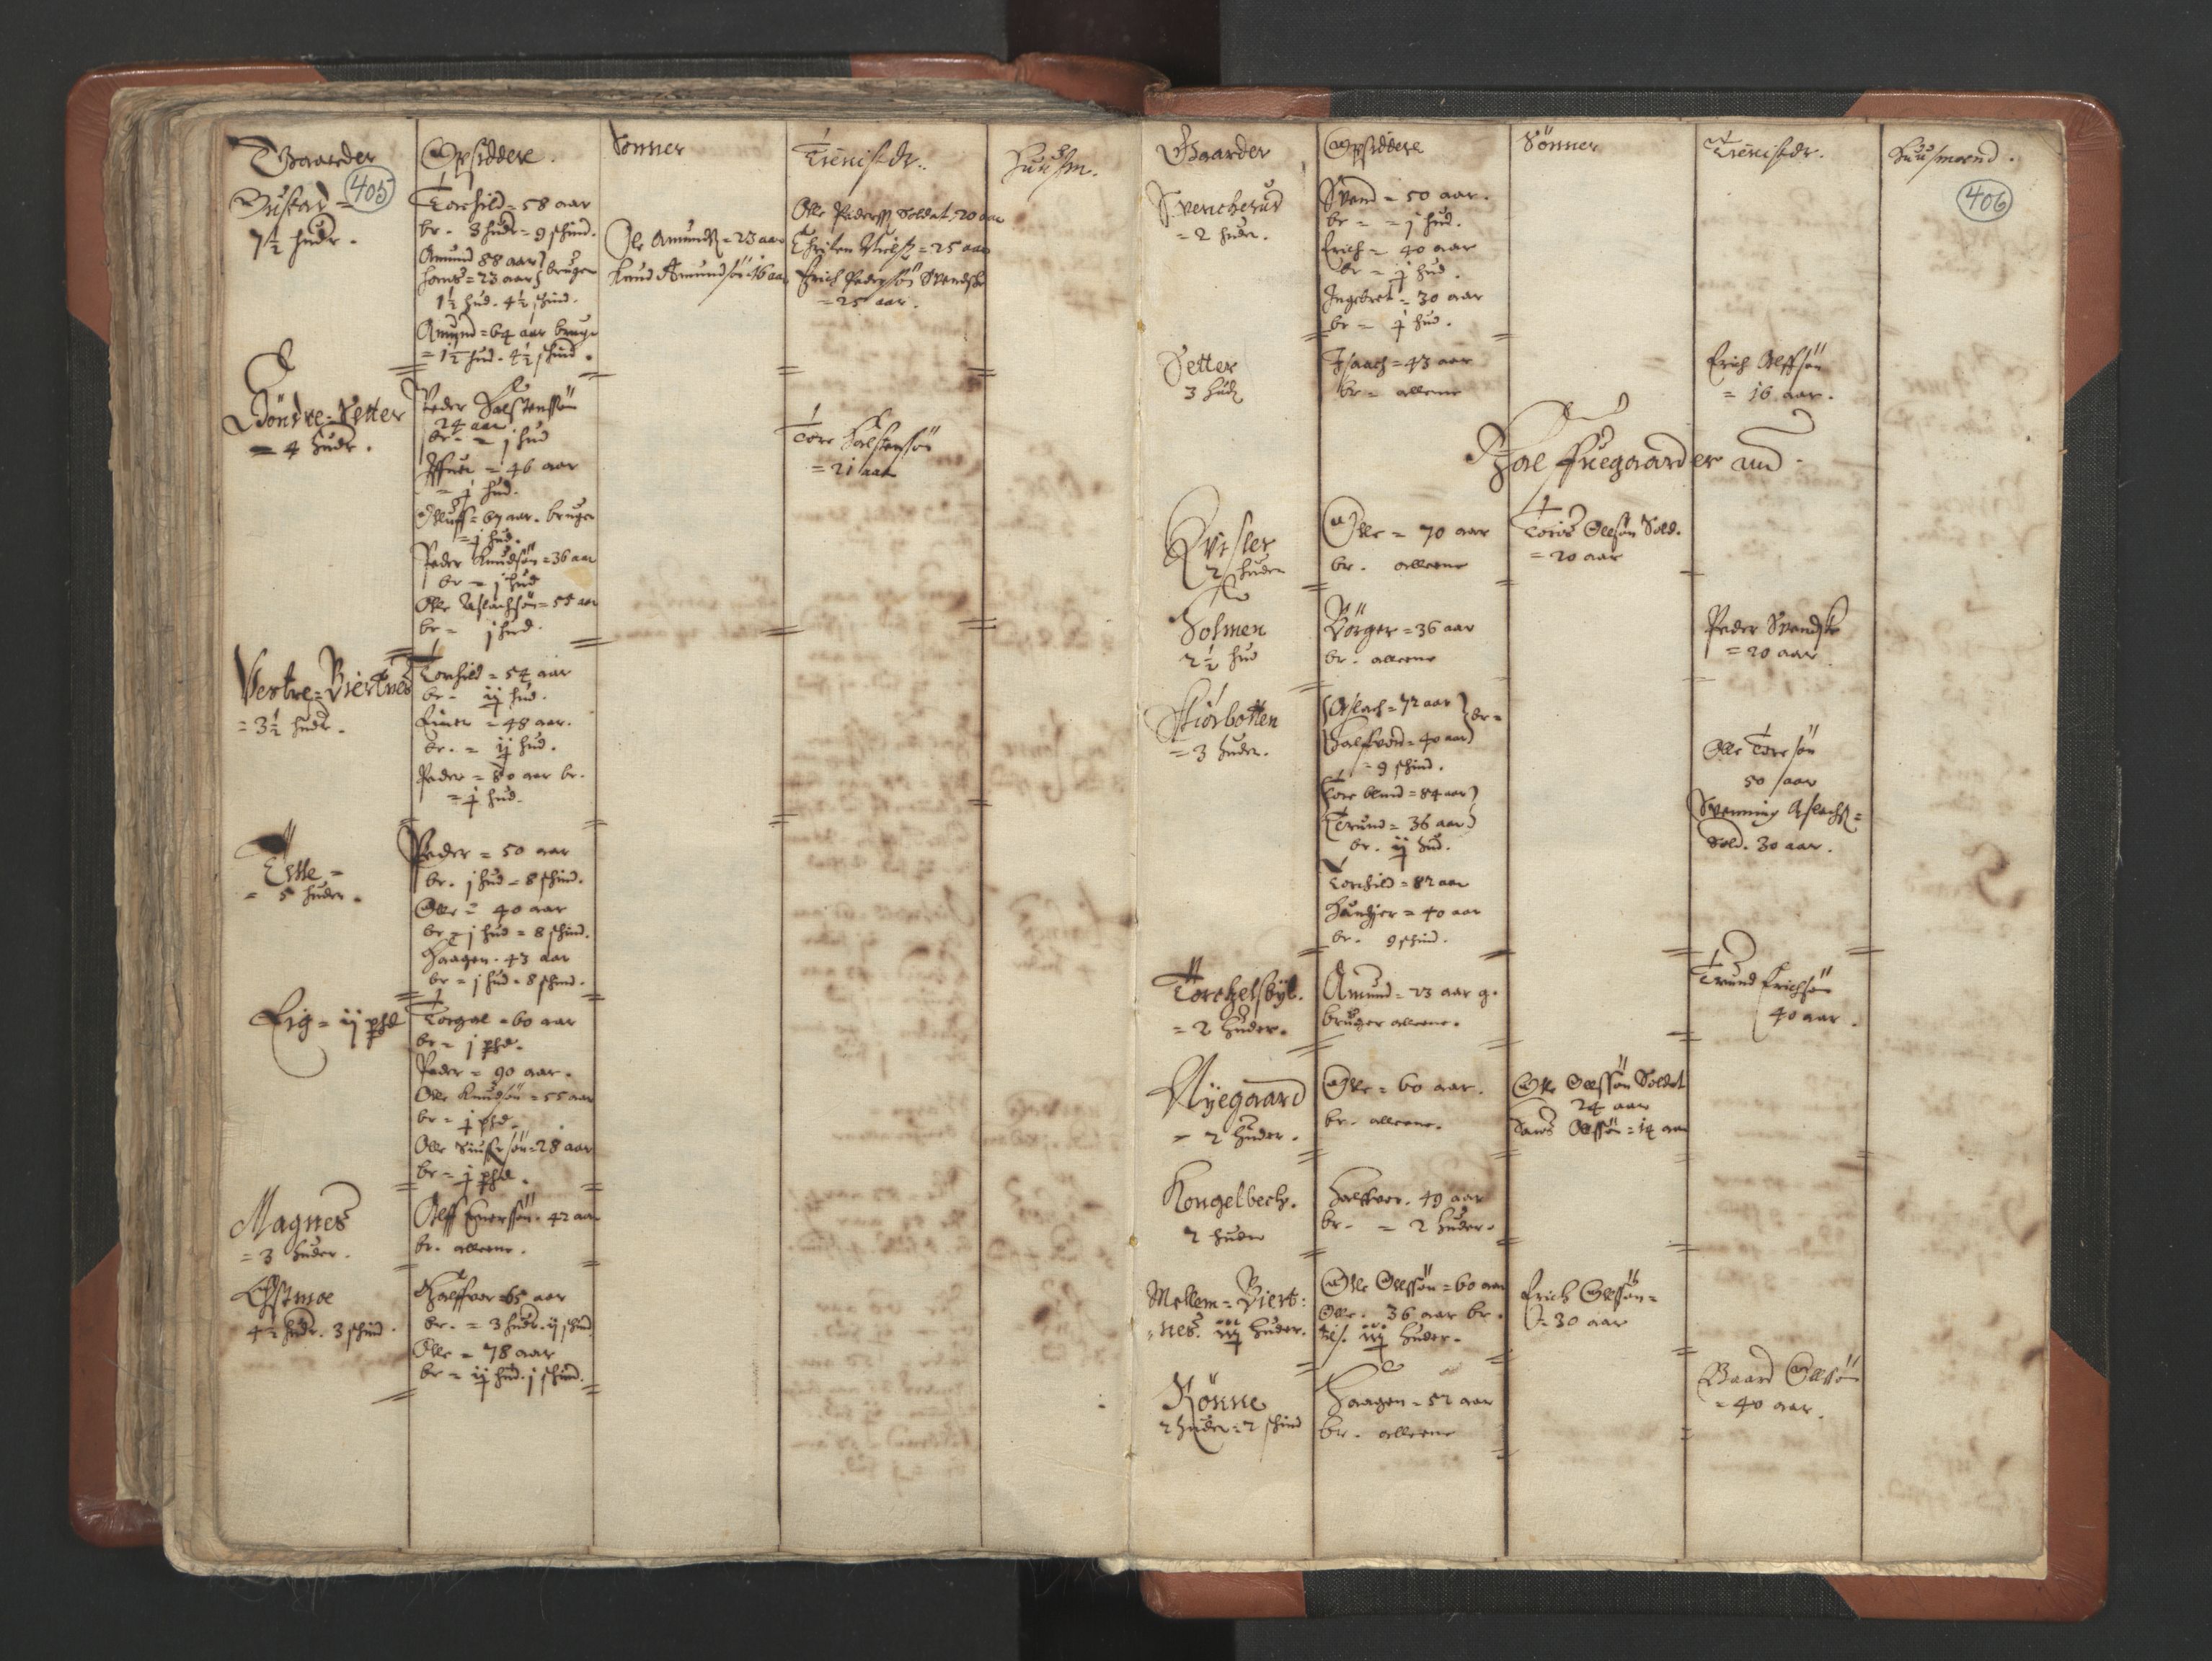 Gaarder
Opsiddere.
Sønner
Tienistdr.
Huusm.
405
7½ hudr.
Torchild = 58 aar
br. 3 hudr = 9 schind.
Amund 88 aar
Hans = 23 aar bruger
1½ hud. 4½ schind.
Amund = 64 aar bruger
= 1½ hud. 4½ schind.
Ole Amunds = 23 aar
Knud Amundsøn 16 aar
Olle Pederss Soldat 20 aar
Christen Nielss = 25 aar
Erich Pedersøn Svendske
= 25 aar.
Søndre = Setter
= 4 hudr.
Peder Halstenssøn
24 aar
br. = j hud
Iffuer = 46 aar
= j hud.
Oluff = 67 aar. bruger
= j hud.
Peder Knudsøn = 36 aar
br = j hud
Olle Aslachsøn = 54 aar
br = j hud.
Tore Halstenssøn
= 21 aar
Vestre = Biertnes
= 3½ hudr.
Torchild = 54 aar
br = ij hud.
Einer = 48 aar.
br. = ij hud.
Peder = 80 aar br.
= j hud.
= 5 huder.
Peder = 50 aar
br. j hud = 8 schind.
Olle = 40 aar
br = j hud = 8 schind.
Haagen. 43 aar
br = j hud = 8 schind.
Eig = ij phd
Torgal = 60 aar
br = j phd.
Peder = 90 aar.
Olle Knudsøn = 55 aar
br = j phd.
Olle Siursøn = 28 aar
br = j phd.
Magnes
= 3 huder.
Oluff Enerssøn. 42 aar
br. alleene.
Østmoe
4½ hudr. 3 schind.
Halffuor = 65 aar
br. = 3 hudr. ij schind
Olle = 78 aar
br = ij hud. j schind.
Gaarder
Opsiddere
Sønner
Tienistdr.
Huusmend.
406
Svencherud
= 2 huder.
Svend = 50 aar.
br = = j hud.
Erich = 40 aar
br = j hud.
Ingebret = 30 aar
br = j hud.
Setter
3 hudr
Isaach = 43 aar
br = allene
Erich Oluffsøn
= 16 aar.
Halffuegaarder und.
Kvisler
2 huder
Olle = 70 aar
br. alleene
Toris Ollsøn Sold.
= 20 aar
Holmen
2½ hud
Børger = 36 aar
br. alleene
Peder Svendske
= 20 aar.
Stiørbotten
= 3 huder.
Aslach = 72 aar
Halfvord = 40 aar br =
= 9 schind.
Tore blind = 84 aar
Trund = 36 aar
br. ij hud.
Torchild = 82 aar
Haur = 40 aar
br. 9 schind.
Olle Toresøn
50 aar
Svenning Aslachs =
Sold. 30 aar.
Torchelsbÿl.
= 2 huder.
Amund = 23 aar g.
bruger alleene.
Trund Erichsøn
40 aar.
Nÿegaard
= 2 huder.
Olle = 60 aar.
br. alleene.
Olle Ollssøn Soldat
24 aar
Lars Ollssøn = 14 aar
Kongelbech.
2 huder
Halffuor. 49 aar
br. = 2 huder.
Mellem = Biert:
=nes. iij huder.
Olle Ollssøn = 60 aar
Olle. 36 aar br.
til. iij huder.
Erich Ollssøn =
= 30 aar
Rønne
2 huder = 2 schind
Haagen = 52 aar
br. alleene
Baard Ollssøn
= 40 aar.